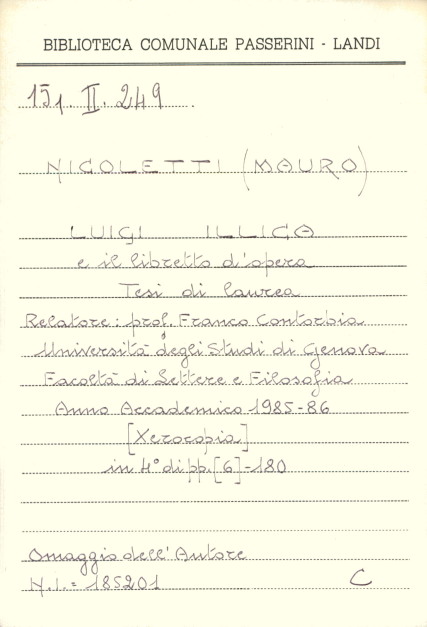 BIBLIOTECA COMUNALE PASSERINI - LANDI
151. II. 249
NICOLETTI (MAURO)
LUIGI ILLICA
e il libretto d'opera
Tesi di laurea
Relatore: prof. Franco Contorbia
Università degli Studi di Genova
Facoltà di Lettere e Filosofia
Anno Accademico 1985-86
[Xerocopia]
in 4° di pp. [6]-180
Omaggio dell'Autore
N.I.= 185201 C